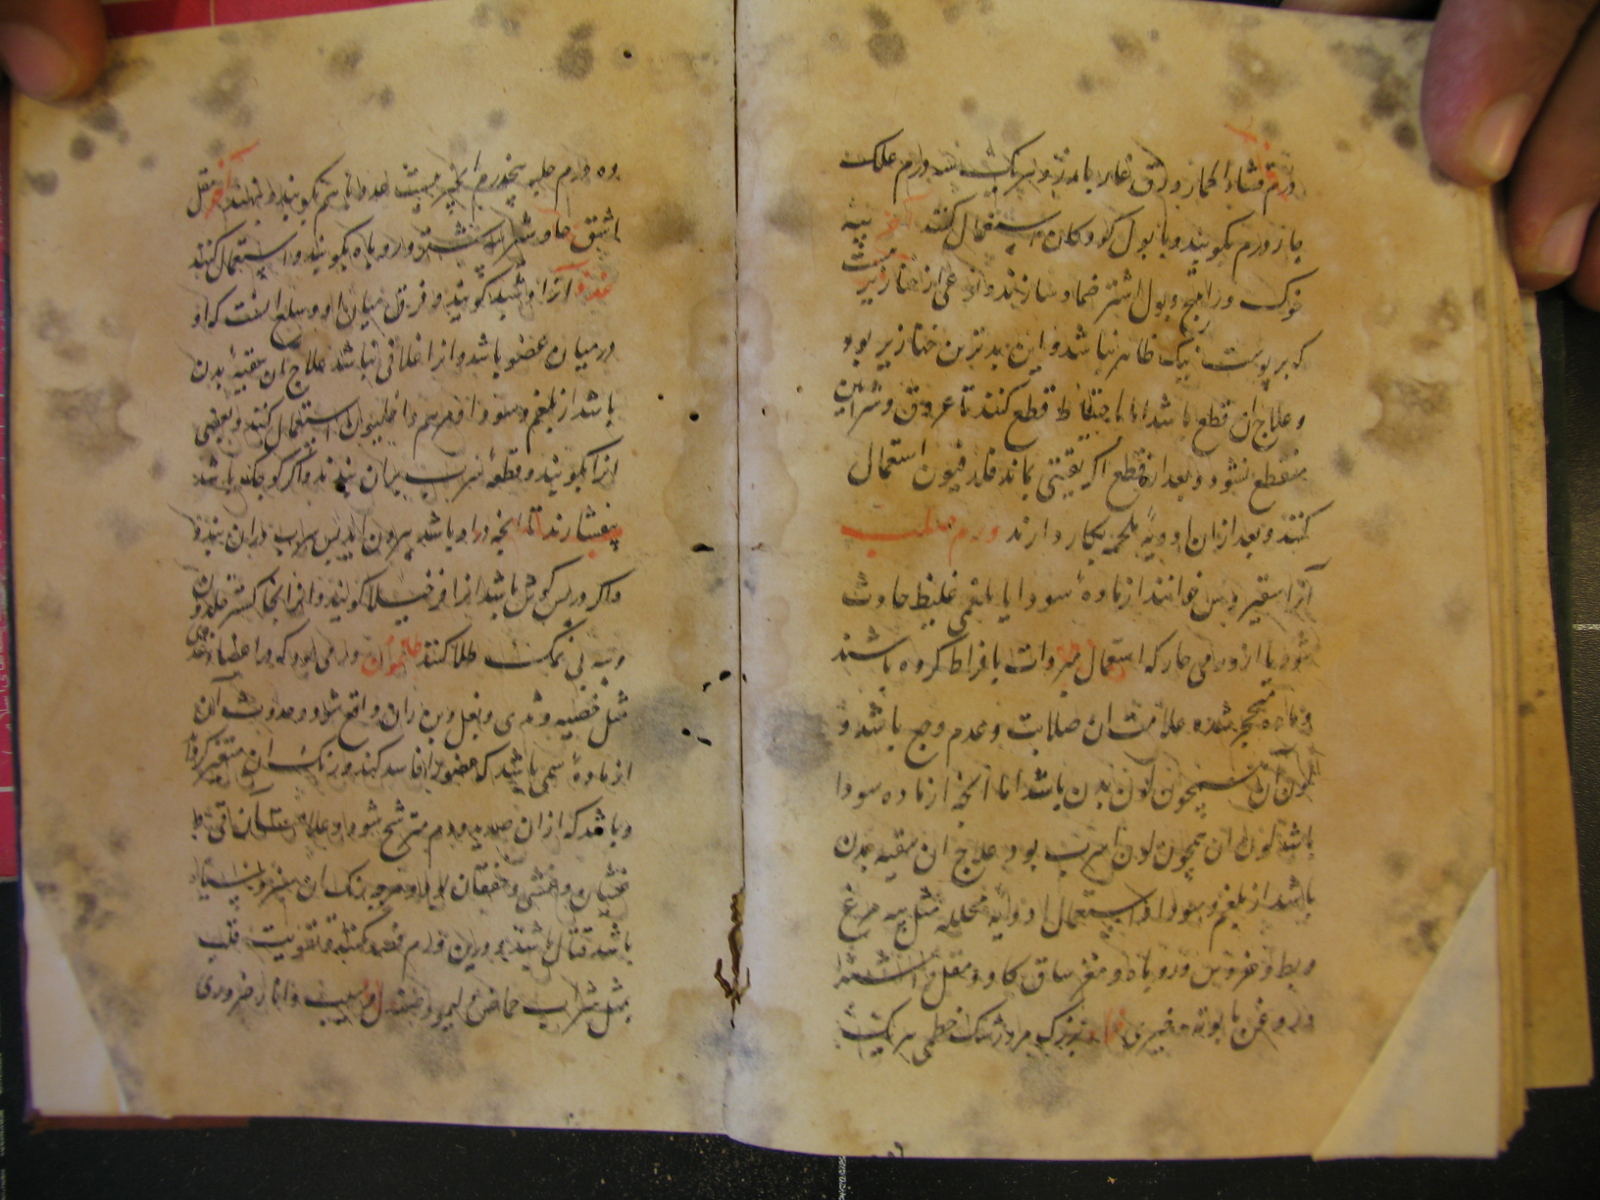 ورم قثاء الحمار ورق غار باندزوت هریک سه درم علک
چار درم بکوبند و با بول کودکان استعمال کنند آخر پیه
خوک وزرنیخ و بول اشتر ضماد سازند و نوعی از خنازیر هست
که بر پوست نیک ظاهر نباشد و این بدترین خنازیر بود
و علاج ان قطع باشد اما باحتیاط قطع کنند تا عروق و شرائین
منقطع نشود و بعد از قطع اگر بقیتی بماند فلدفیون استعمال
کنند و بعد از ان ادویهٔ ملحمه بکار دارند ورم صلب
آنرا سقیروس خوانند از مادهٔ سودا یا بلغمی غلیظ حادث
شود یا از ورمی حار که استعمال مبردات بافراط کرده باشند
و ماده متحجر شده علامت ان صلابت و عدم وجع باشد و
لون آن همچون لون بدن باشد اما انچه از ماده سودا
باشد لون ان همچون لون اسرب بود علاج ان تنقیه بدن
باشد از بلغم و سودا و استعمال ادویه محلله مثل پیه مرغ
و بط و خروس و روباه و مغز ساق کاو و مقل و اشق
و روغن بابونه خبیری بزرک مرو اشنک خطمی هریک
ده درم حلبه پنجدرم انجیر بیست عدد با هم بکوبند و بنهند آخر مقل
اشق جاوشیر به بکوبند و استعمال کنند
غدد آنرا گویند و فرق میان او و سلع انست که او
در میان عضو باشد و انرا غلافی نباشد علاج ان تنقیهٔ بدن
باشد از بلغم و سودا و مرهم داخلیون استعمال کنند و بعضی
انرا بکوبند و قطعهٔ سرب بران بندند و اگر کوچک باشد
بیفشارند تا انچه در او باشد بیرون اید پس سرب بران بندند
و اگر در پس گوش باشد انرا گویند و انرا بخاکستر حلزون
و پیه بی نمک طلا کنند طاعون ورمی بود که در اعضاء غددی
مثل خصیه و ثدی و بغل و بن ران واقع شود و حدوث آن
از مادهٔ سمی باشد که عضو را فاسد کند و رنک ان متغیر کرداند
و باشد که از ان صدید و دم مترشح شود و علامتش ان قی
غثیان و غشی و خفقان بود و هرچه رنک ان سیاه
باشد قتال باشد در این ورم فصد کنند و تقویت قلب
بمثل شراب حماض و لیمو و صندل و سیب و انار ضروری